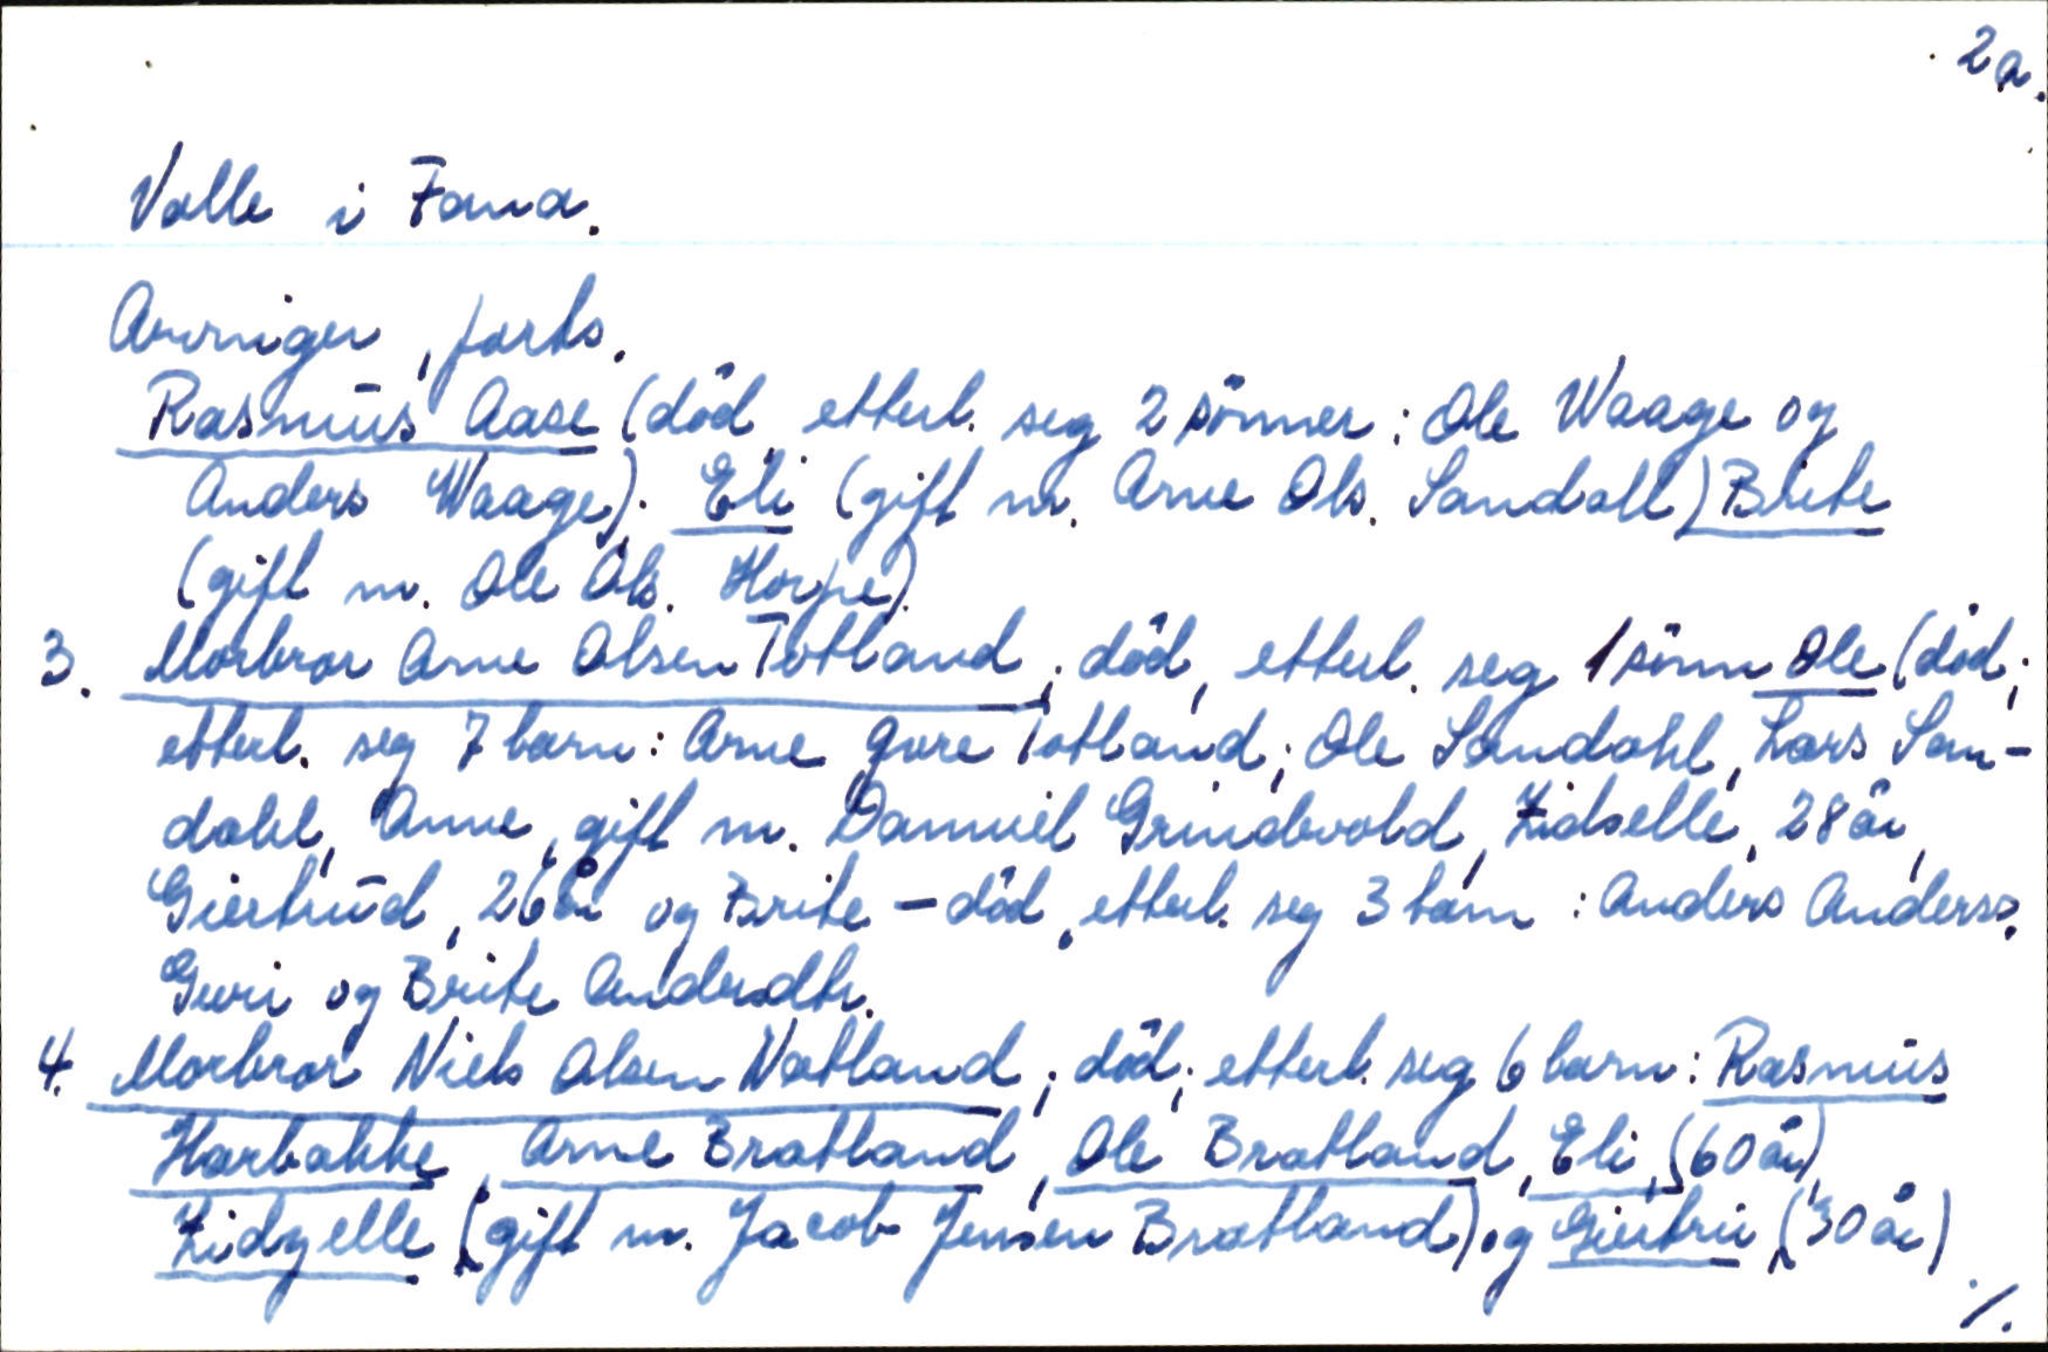 2a.
Valle i Fana.
Arvinger, forts.
Rasmus Aase (død, etterl. seg 2 sønner: Ole Waage og
Anders Waage). Eli (gift m. Arne Ols. Sandall) Brite
(gift m. Ole Ols. Horpe).
3. Morbror Arne Olsen Totland; død, etterl. seg 1 sønn Ole (død;
etterl. seg 7 barn: Arne Øvre Totland; Ole Sandahl, Lars San-
dahl, Anne, gift m. Daniel Grindevold, Zidselle, 28 år,
Giertrud, 26 år og Brite - død, etterl. seg 3 barn: Anders Anderss.
Guri og Brite Andersdtr.
4. Morbror Niels Olsen Natland; død; etterl. seg 6 barn: Rasmus
Harbakke, Arne Bratland, Ole Bratland, Eli, (60 år),
Zidzelle (gift m. Jacob Jensen Bratland) og Giertru (30 år)
./.